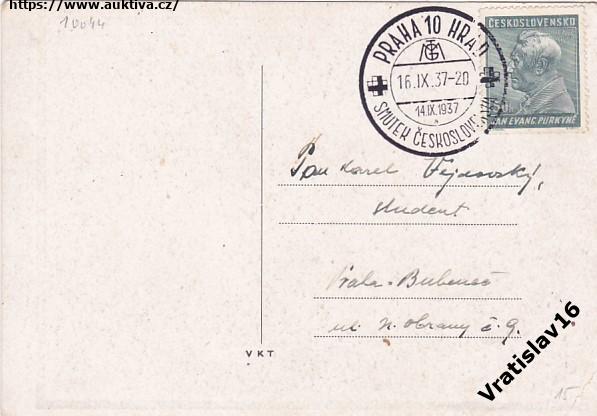 https://www.auktiva.cz/
10044
PRAHA 10 HRAD
TGM
16.IX.37-20
14.IX.1937
SMUTEK ČESKOSLOVENSKA
ČESKOSLOVENSKO
JAN EVANG. PURKYNĚ
Pan Karel
student
Praha-Bubeneč
ul. N. Obrany č. 9.
VKT
Vratislav16
15,-